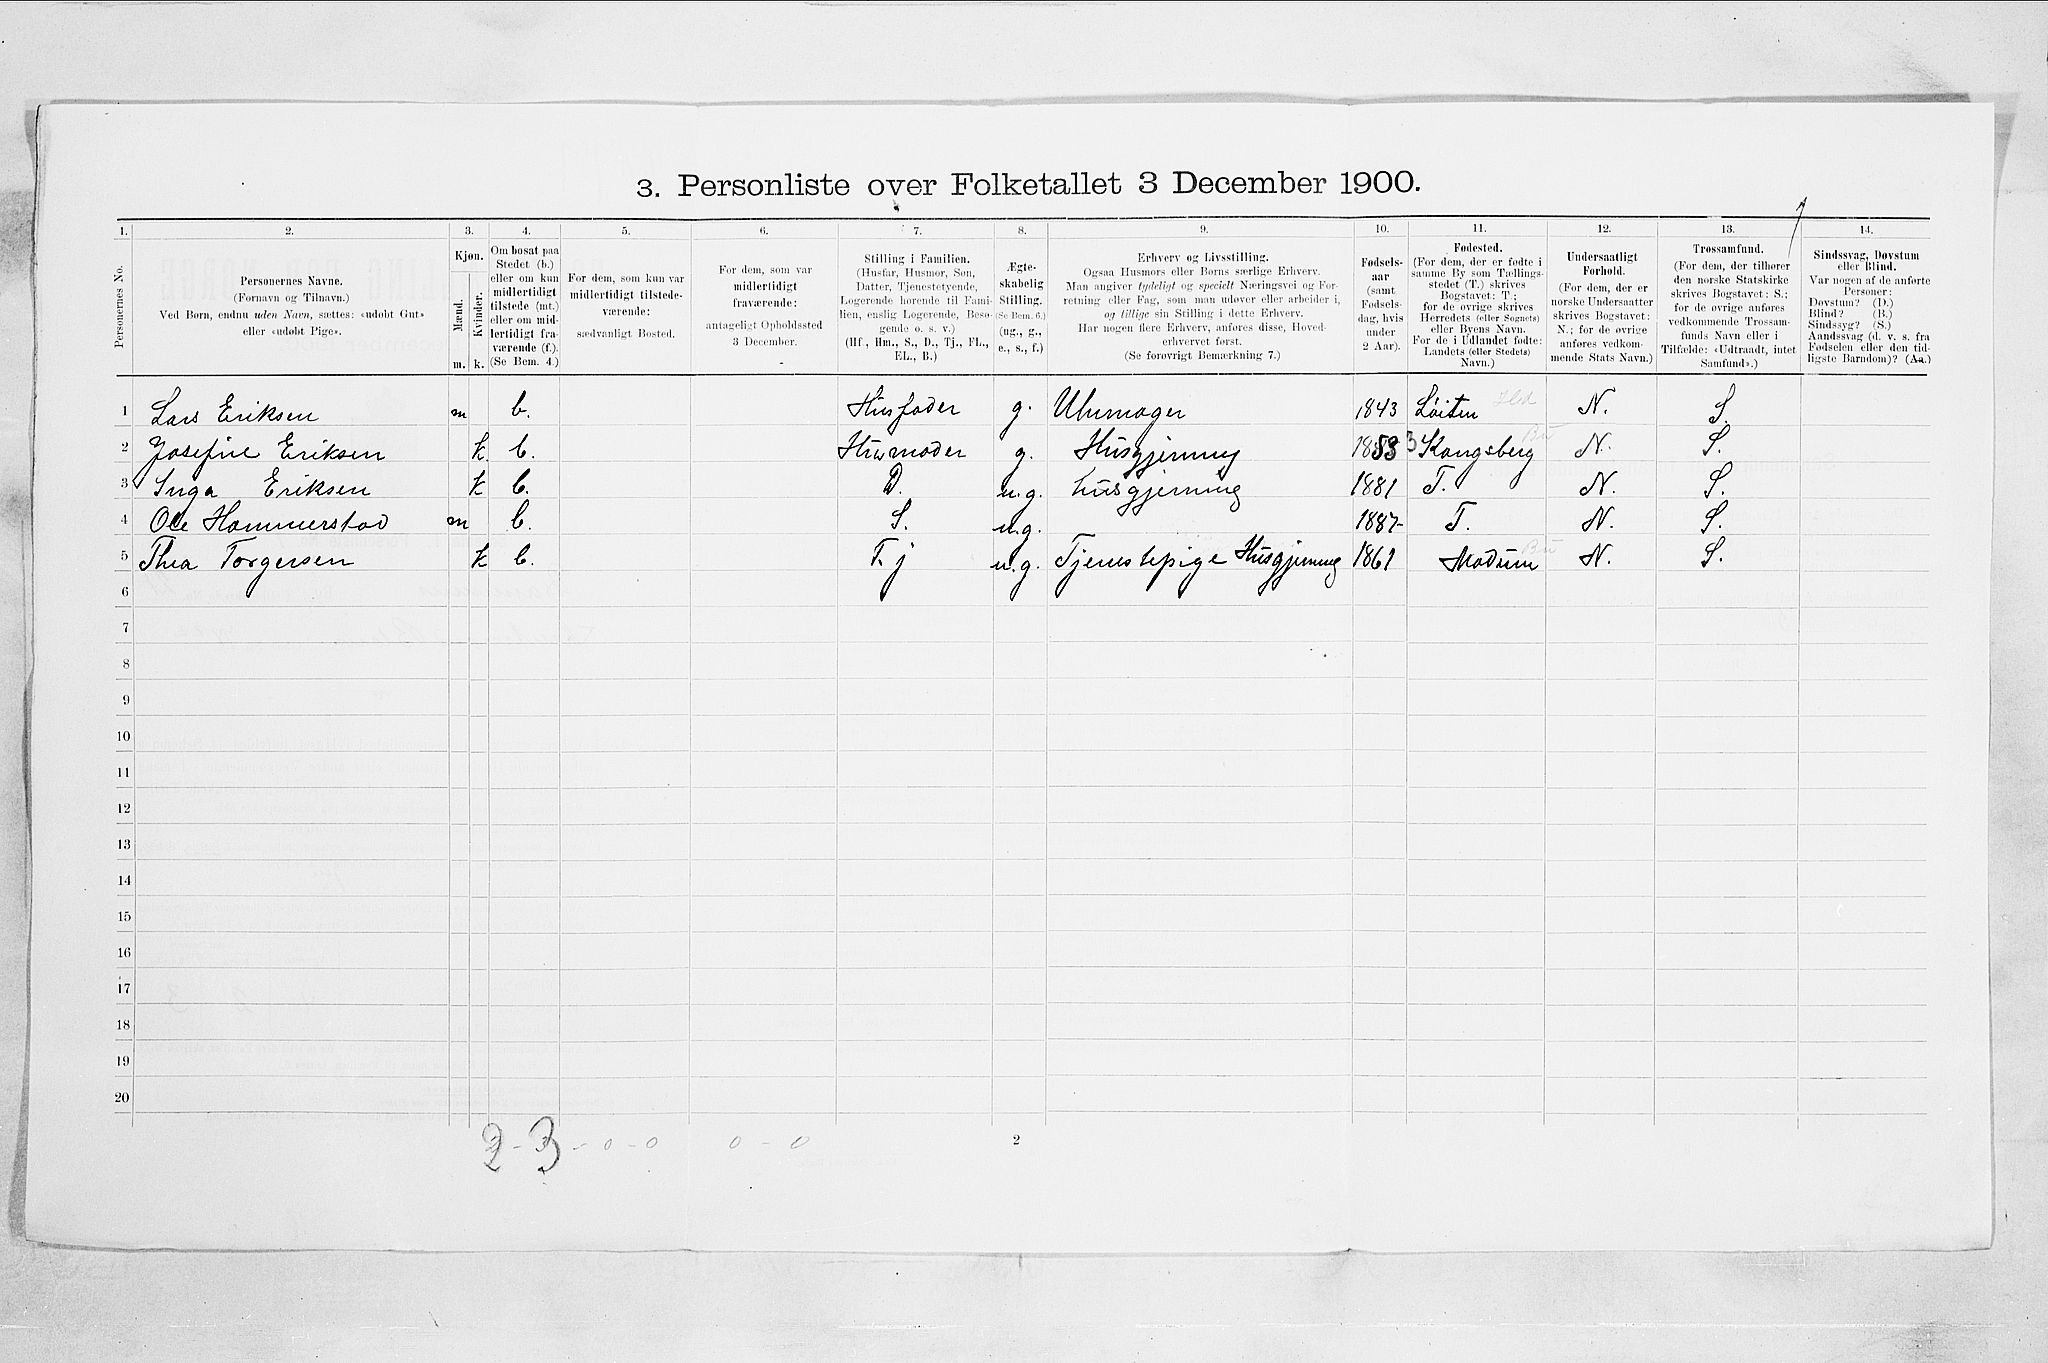 3. Personliste over Folketallet 3 December 1900.
1. 2. 3. 4. 5. 6. 7. 8. 9. 10. 11. 12. 13. 14.
Personernes No.
Personernes Navne.
(Fornavn og Tilnavn.)
Ved Børn, endnu uden Navn, sættes: «udøbt Gut»
eller «udøbt Pige».
Kjøn.
Mænd.
Kvinder.
m. k.
Om bosat paa
Stedet (b.)
eller om kun
midlertidigt
tilstede (mt.)
eller om mid-
lertidigt fra-
værende (f.).
(Se Bem. 4.)
For dem, som kun var
midlertidigt tilstede-
værende:
sædvanligt Bosted.
For dem, som var
midlertidigt
fraværende:
antageligt Opholdssted
3 December.
Stilling i Familien.
(Husfar, Husmor, Søn,
Datter, Tjenestetyende,
Logerende hørende til Fami-
lien, enslig Logerende, Besø-
gende o. s. v.)
(Hf., Hm., S., D., Tj., FL.,
EL., B.)
Ægte-
skabelig
Stilling.
(Se Bem. 6.)
(ug., g.,
e., s., f.)
Erhverv og Livsstilling.
Ogsaa Husmors eller Børns særlige Erhverv.
Man angiver tydeligt og specielt Næringsvei og For-
retning eller Fag, som man udøver eller arbeider i,
og tillige sin Stilling i dette Erhverv.
Har nogen flere Erhverv, anføres disse, Hoved-
erhvervet først.
(Se forøvrigt Bemærkning 7.)
Fødsels-
aar
(samt
Fødsels-
dag, hvis
under
2 Aar).
Fødested.
(For dem, der er fødte i
samme By som Tællings-
stedet (T.) skrives
Bogstavet: T.;
for de øvrige skrives
Herredets (eller Sognets)
eller Byens Navn.
For de i Udlandet fødte:
Landets (eller Stedets)
Navn.)
Undersaatligt
Forhold.
(For dem, der er
norske Undersaatter
skrives Bogstavet:
N.; for de øvrige
anføres vedkom-
mende Stats Navn.)
Trossamfund.
(For dem, der tilhører
den norske Statskirke
skrives Bogstavet: S.;
for de øvrige anføres
vedkommende Trossam-
funds Navn eller i
Tilfælde: «Udtraadt, intet
Samfund».)
Sindssvag, Døvstum
eller Blind.
Var nogen af de anførte
Personer:
Døvstum? (D.)
Blind? (B.)
Sindssyg? (S.)
Aandssvag (d. v. s. fra
Fødselen eller den tid-
ligste Barndom)? (Aa.)
1 Lars Eriksen m b. Husfader g. Uhrmager 1843 Løiten Hed N. S.
2 Josefine Eriksen k b. Husmoder g. Husgjerning 1853 3 Kongsberg Bu N. S.
3 Inga Eriksen k b. D. u.g. husgjerning 1881 T. N. S.
4 Ole Hammerstad m b. S. u.g. 1887 T. N. S.
5 Thea Torgersen k b. T.j u.g. Tjenestepige Husgjerning 1861 Modum Bu N. S.
6
7
8
9
10
11
12
13
14
15
16
17
18
19
20
2-3-0-0 0-0
2